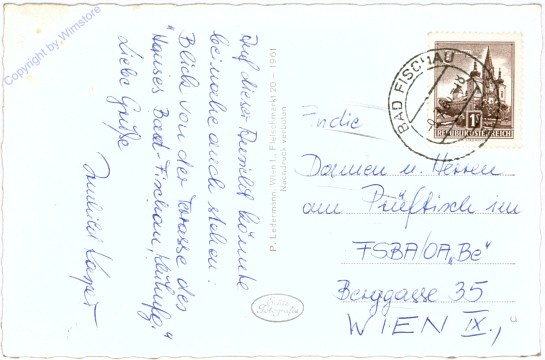 Copyright by Wimstore
Auf dieser Rückseite könnte
beinahe auch stehen:
Blick von der Terrasse des
"Hauses Bad-Fischau,
Liebe Grüße
P. Ledermann, Wien 1., Fleischmarkt 20 – 1961
Nachdruck verboten
Echte
Fotografie
BAD FISCHAU
1S
REPUBLIK ÖSTERREICH
An die
Damen u. Herren
am Prüftisch im
FSBA/OA„Be"
Berggasse 35
WIEN IX.,